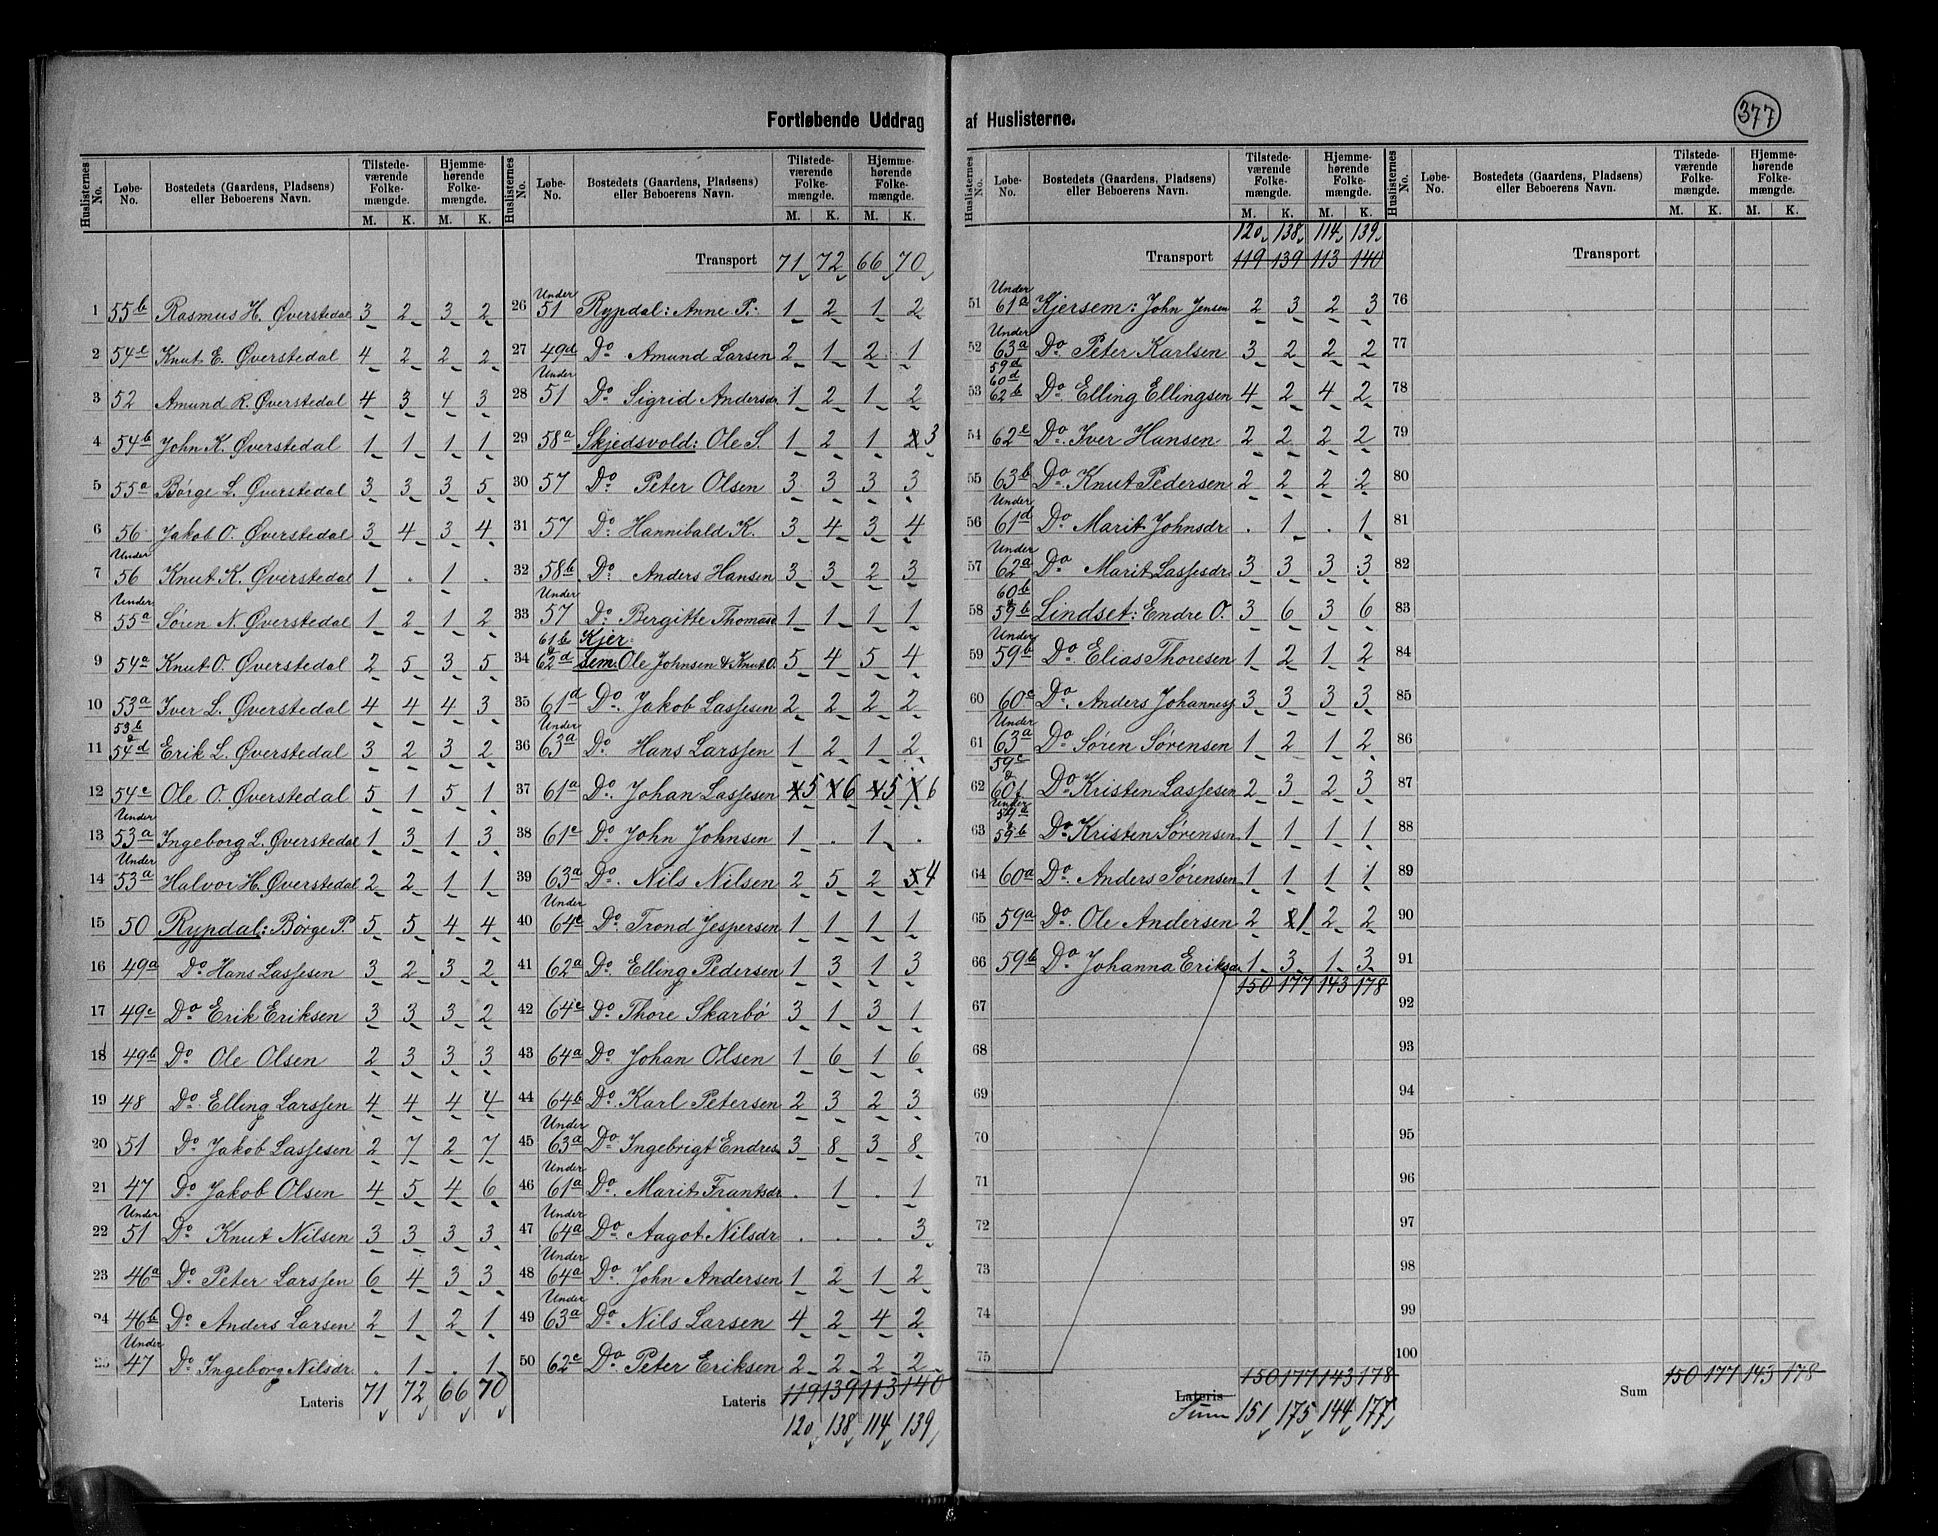 Fortløbende Uddrag af Huslisterne.
377
Huslisternes No. Løbe-No. Bostedets (Gaardens, Pladsens) eller Beboerens Navn. Tilstedeværende Folkemængde. M. K. Hjemmehørende Folkemængde. M. K.
1 55b Rasmus H. Øverstedal 3 2 3 2
2 54e Knut E. Øverstedal 4 2 2 2
3 52 Amund R. Øverstedal 4 3 4 3
4 54b John K. Øverstedal 1 1 1 1
5 55a Børge L. Øverstedal 3 3 3 5
6 56 Jakob O. Øverstedal 3 4 3 4
7 Under 56 Knut K. Øverstedal 1 . 1 .
8 Under 55a Søren N. Øverstedal 1 2 1 2
9 54a Knut O. Øverstedal 2 5 3 5
10 53a Iver L. Øverstedal 4 4 4 3
11 53b & 54d Erik L. Øverstedal 3 2 3 2
12 54c Ole O. Øverstedal 5 1 5 1
13 Under 53a Ingeborg L. Øverstedal 1 3 1 3
14 Under 53a Halvor H. Øverstedal 2 2 1 1
15 50 Rypdal: Børge P. 5 5 4 4
16 49a Do Hans Lassesen 3 2 3 2
17 49c Do Erik Eriksen 3 3 3 2
18 49b Do Ole Olsen 2 3 3 3
19 48 Do Elling Larssen 4 4 4 4
20 51 Do Jakob Lassesen 2 7 2 7
21 47 Do Jakob Olsen 4 5 4 6
22 Under 51 Do Knut Nilsen 3 3 3 3
23 46a Do Peter Larssen 6 4 3 3
24 46b Do Anders Larsen 2 1 2 1
25 Under 47 Do Ingeborg Nilsdr. . 1 . 1
Lateris 71 72 66 70
Huslisternes No. Løbe-No. Bostedets (Gaardens, Pladsens) eller Beboerens Navn. Tilstedeværende Folkemængde. M. K. Hjemmehørende Folkemængde. M. K.
Transport 71 72 66 70
26 Under 51 Rypdal: Anne P. 1 2 1 2
27 49d Do Amund Larsen 2 1 2 1
28 Under 51 Do Sigrid Andersdr. 1 2 1 2
29 58a Skjedsvold: Ole S. 1 2 1 2 3
30 57 Do Peter Olsen 3 3 3 3
31 57 Do Hannibald K. 3 4 3 4
32 58b Do Anders Hansen 3 3 2 3
33 Under 57 Do Bergitte Thomasd 1 1 1 1
34 61b & 62d Kjersem: Ole Johnsen & Knut O. 5 4 5 4
35 61d Do Jakob Lassesen 2 2 2 2
36 Under 63a Do Hans Larssen 1 2 1 2
37 61a Do Johan Lassesen 5 6 5 6
38 61c Do John Johnsen 1 . 1 .
39 63a Do Nils Nilsen 2 5 2 5 4
40 Under 64c Do Trond Jespersen 1 1 1 1
41 62a Do Elling Pedersen 1 3 1 3
42 64c Do Thore Skarbø 3 1 3 1
43 64a Do Johan Olsen 1 6 1 6
44 64b Do Karl Petersen 2 3 2 3
45 Under 63a Do Ingebrigt Endres. 3 8 3 8
46 Under 61a Do Marit Frantsdr . 1 . 1
47 Under 64a Do Aagot Nilsdr . . . 3
48 Under 64a Do John Andersen 1 2 1 2
49 Under 63a Do Nils Larsen 4 2 4 2
50 62c Do Peter Eriksen 2 2 2 2
Lateris 119 139 113 140
120 138 114 139
Huslisternes No. Løbe-No. Bostedets (Gaardens, Pladsens) eller Beboerens Navn. Tilstedeværende Folkemængde. M. K. Hjemmehørende Folkemængde. M. K.
120 138 114 139
Transport 119 139 113 140
51 Under 61a Kjersem: John Jensen 2 3 2 3
52 Under 63a Do Peter Karlsen 3 2 2 2
53 59d 60d 62b Do Elling Ellingsen 4 2 4 2
54 62e Do Iver Hansen 2 2 2 2
55 63b Do Knut Pedersen 2 2 2 2
56 Under 61d Do Marit Johnsdr . 1 . 1
57 Under 62a Do Marit Lassesdr. 3 3 3 3
58 60b & 59b Lindset: Endre O. 3 6 3 6
59 Under 59b Do Elias Thoresen 1 2 1 2
60 60c Do Anders Johannes 3 3 3 3
61 Under 63a Do Søren Sørensen 1 2 1 2
62 59c & 60f Do Kristen Lassesen 2 3 2 3
63 Under 59a & 59b Do Kristen Sørensen 1 1 1 1
64 60a Do Anders Sørensen 1 1 1 1
65 59a Do Ole Andersen 2 2 1 2 2
66 59b Do Johanna Eriksdr 1 3 1 3
67 150 177 143 178
68
69
70
71
72
73
74
75
150 177 143 178
Lateris
Sum 151 175 144 177
Huslisternes No. Løbe-No. Bostedets (Gaardens, Pladsens) eller Beboerens Navn. Tilstedeværende Folkemængde. M. K. Hjemmehørende Folkemængde. M. K.
Transport
76
77
78
79
80
81
82
83
84
85
86
87
88
89
90
91
92
93
94
95
96
97
98
99
100
Sum 150 177 143 178